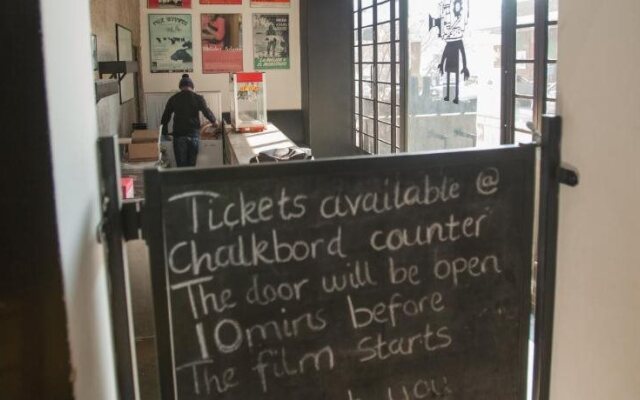 Tickets available @
Chalkbord counter
The door will be open
10mins before
The film starts
you